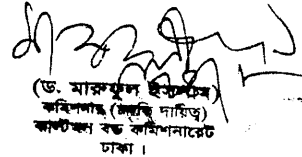 (ড. মারুফুল ইসলাম)
কমিশনার (চলতি দায়িত্ব)
কাস্টমস বন্ড কমিশনারেট
ঢাকা ।